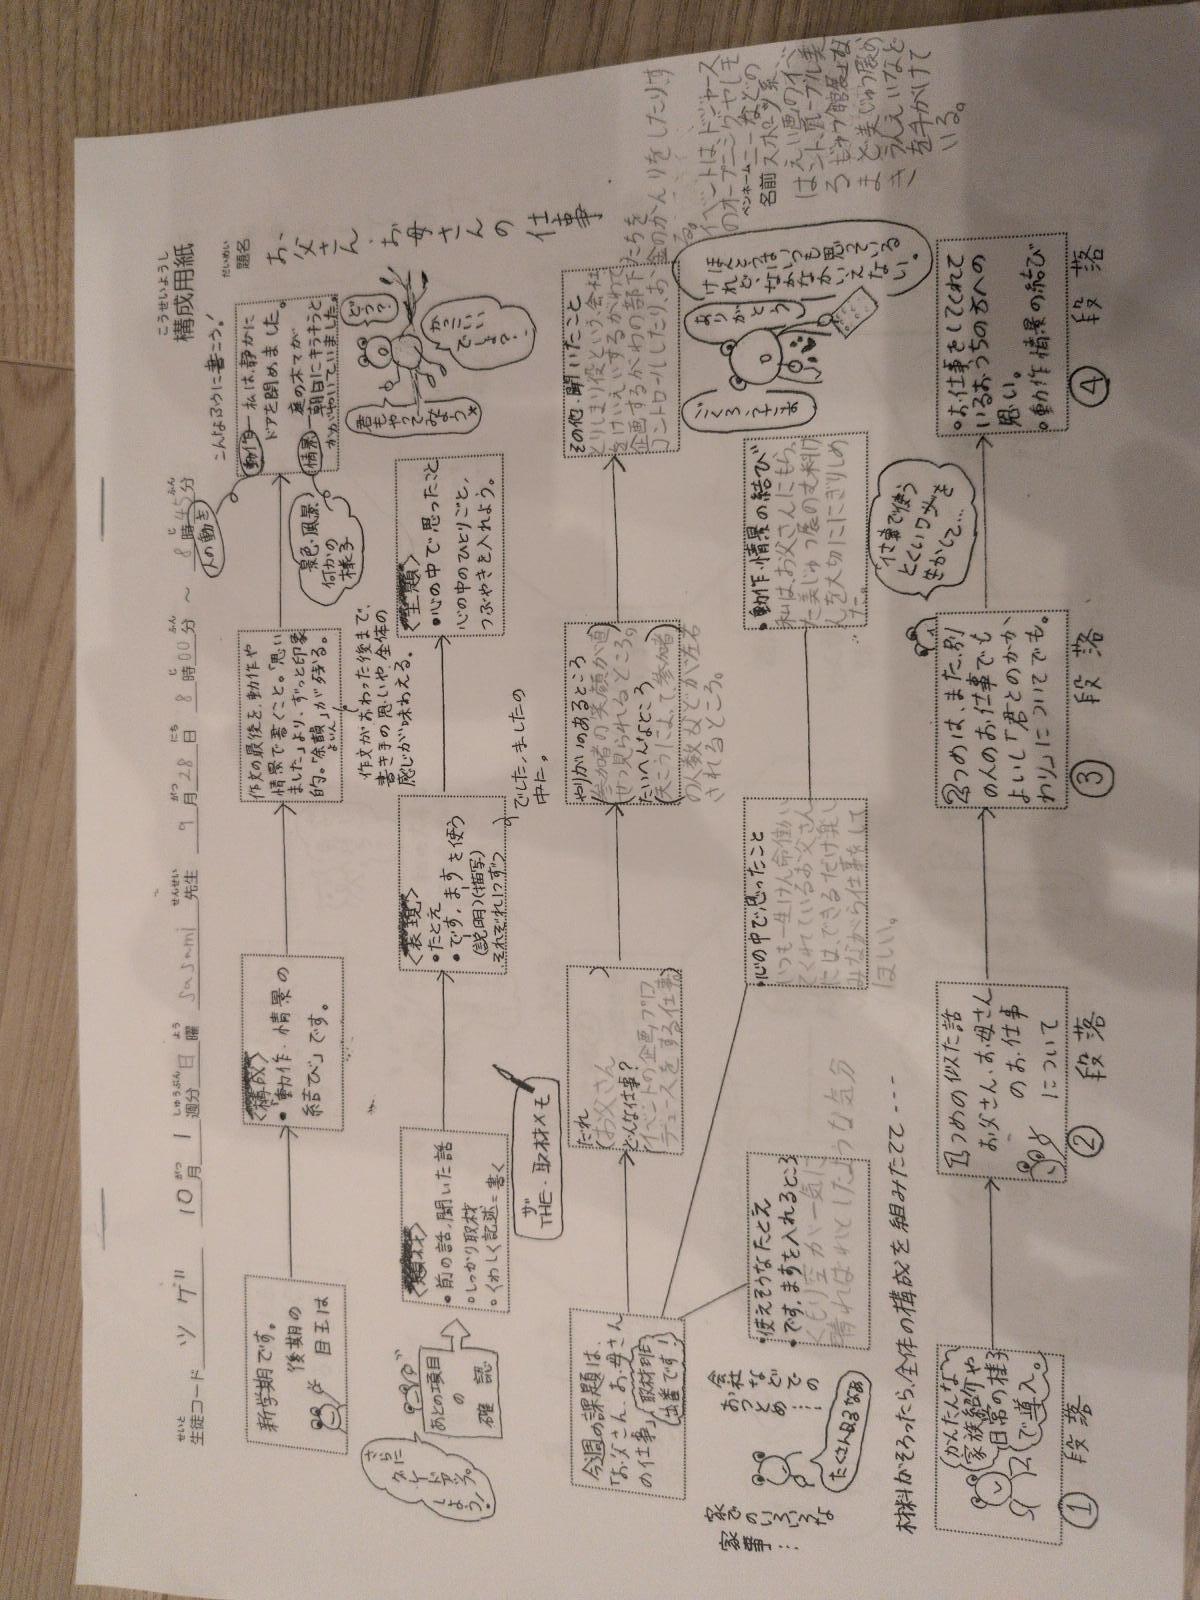 こうせいようし
構成用紙
せいと
生徒コード ツゲ 10月 1週分 日曜 sasami 先生 9月28日 8時00分 ～ 8時45分
だいめい
題名
お父さん、お母さんの仕事
こんなふうに書こう!
新学期です。
後期の
目玉は
〈構成〉
・「動作・情景の
結び」です。
作文の最後を、動作や
情景で書くこと。「思い
ました」より、ずっと印象
的。「余韻」が残る。
よいん
作文がおわった後まで、
書き手の思いや、全体の
感じが味わえる。
動作―私は、静かに
ドアを閉めました。
情景―庭の木てが
朝日にキラキラと
かがやいていました。
人の動き
景色・風景
何かの
様子
さらに
グレードアップ
しよう!
あとの項目
の
確認
〈題材〉
・前の話、聞いた話
・しっかり取材
・くわしく記述=書く
〈表現〉
・たとえ
・です。ます を使う
(説明)(描写)
それぞれ1つずつ
でした、ましたの
中に。
〈主題〉
・心の中で思ったこと
心の中のひとりごと、
つぶやきを入れよう。
君も
やって
みよう★
どう?
かっこいい
でしょ?
ザ
THE・取材メモ
今週の課題は、
「お父さん、お母さん
の仕事」
取材班
出番です!
だれ
(お父さん)
どんな仕事?
(イベントの企画、プロ
デュースをする仕事)
やりがいのあるところ
(参加者の笑顔が直
せつ見られるところ。)
たいへんなところ
(天こうによって、参加者
の人数などが左右
されるところ。
その他・聞いたこと
とりしまり役という、会社
をけいえいするがわで
企画するがわの部下たちを
コントロールしたり、お金のかんりをしたりす
る。
イベントは、ドジャース
のオープニングやレモ
ペンホームニーなどの
名前 スポーツ系
家での
いろいろな
家事…
会社
などでの
おつとめ…
たくさんあるなあ
・使えそうなたとえ
・です、ますを入れるところ
くもり空が一気に
晴ればれとしたような気分
・心の中で思ったこと
いつも一生けん命働い
てくれているお父さん
には、できるだけ楽し
みながら仕事をして
ほしい。
・動作・情景の結び
私は、お父さんにもらっ
た美じゅつ展のむ料け
んを大切ににぎりしめ
た。
ごくろうさま
ありがとう
ほんとうはいつも思っている
けれど、なかなかいえない。
材料がそろったら、全体の構成を組みたてて----
かんたんな
家族紹介や
日常の様子
で導入。
① 段落
1つめの似た話
お父さん、お母さん
のお仕事
について
② 段落
2つめは、また、別
の人のお仕事でも
よいし「君とのかか
わり」についてでも。
③ 段落
仕事で使う
とくいワザを
生かして…
・お仕事をしてくれて
いるおうちの方への
思い。
・動作・情景の結び
④ 段落